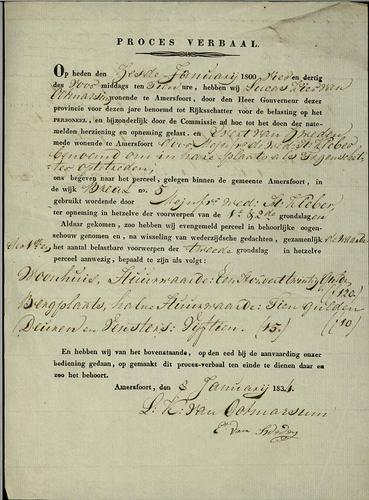 PROCES VERBAAL.
Op heden den Zesde Januarij 1800 vier en dertig
des voor middags ten Tien ure, hebben wij Lucas van
Ootmarsum wonende te Amersfoort, door den Heer Gouverneur dezer
provincie voor dezen jare benoemd tot Rijksschatter voor de belasting op
het PERSONEEL, en bijzonderlijk door de Commissie ad hoc tot het doen der nate-
melden herziening en opneming gelast, en Evert van
mede wonende te Amersfoort door Mejufvr. de Wed: St. Kleber
benoemd om in hare plaats als Tegenschat-
ter op te treden,
ons begeven naar het perceel, gelegen binnen de gemeente Amersfoort, in
de wijk Breul no. 5
gebruikt wordende door Mejufvr. Wed: St. Kleber,
ter opneming in hetzelve der voorwerpen van de 1e & 2de grondslagen
Aldaar gekomen, zoo hebben wij evengemeld perceel in behoorlijke oogen-
schouw genomen en, na wisseling van wederzijdsche gedachten, gezamenlijk de waarde
het aantal belastbare voorwerpen der tweede grondslag in hetzelve
perceel aanwezig, bepaald te zijn als volgt:
Woonhuis, Huurwaarde: Een Hondert twintig Gulden
(120)
Bergplaats, halve Huurwaarde: Tien gulden
(10)
Deuren en Vensters: Vijftien. (15)
En hebben wij van het bovenstaande, op den eed bij de aanvaarding onzer
bediening gedaan, op gemaakt dit proces-verbaal ten einde te dienen daar en
zoo het behoort.
Amersfoort den Januarij 1834.
L: K: van Ootmarsum
E van